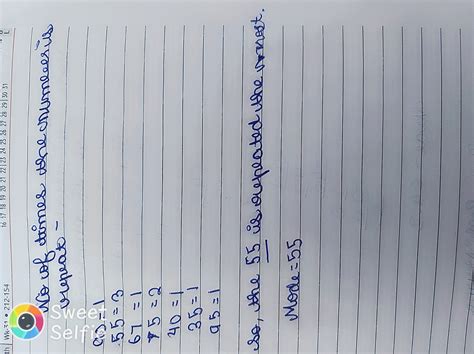 No of times the number is
repeat -
55 = 3
67 = 1
75 = 2
40 = 1
35 = 1
95 = 1
So, the 55 is repeated the most.
Mode = 55
Sweet
Selfie
212-154
16 17 18 19 20 21 22 23 24 25 26 27 28 29 30 31